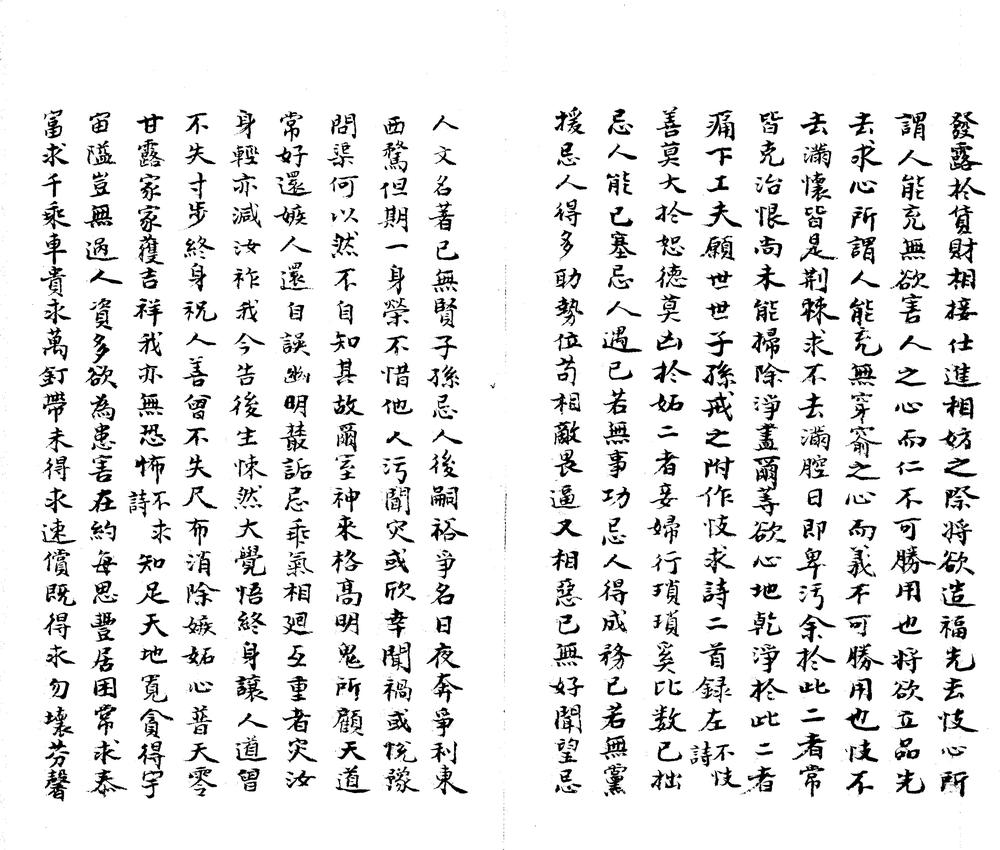 發露於貨財相接仕進相妨之際將欲造福先去忮心所
謂人能充無欲害人之心而仁不可勝用也將欲立品先
去求心所謂人能充無穿窬之心而義不可勝用也忮不
去滿懷皆是荆棘求不去滿腔日即卑污余於此二者常
皆克治恨尚未能掃除淨盡爾等欲心地乾淨於此二者
痛下工夫願世世子孫戒之附作忮求詩二首録左不忮詩
善莫大於恕德莫凶於妬二者妾婦行瑣瑣奚比数己拙
忌人能己塞忌人遇己若無事功忌人得成務己若無黨
援忌人得多助勢位苟相敵畏逼又相惡己無好聞望忌
人文名著己無賢子孫忌人後嗣裕爭名日夜奔爭利東
西騖但期一身榮不惜他人污聞灾或欣幸聞禍或悅豫
問渠何以然不自知其故爾室神來格高明鬼所顧天道
常好還嫉人還自誤幽明叢詬忌乖氣相廻互重者灾汝
身輕亦減汝祚我今告後生悚然大覺悟終身讓人道曾
不失寸步終身祝人善曾不失尺布消除嫉妬心普天零
甘露家家蒦吉祥我亦無恐怖不求詩知足天地寬貪得宇
宙隘豈無過人資多欲為患害在約每思豐居困常求泰
富求千乘車貴求萬釘帶未得求速償既得求勿壞芬馨